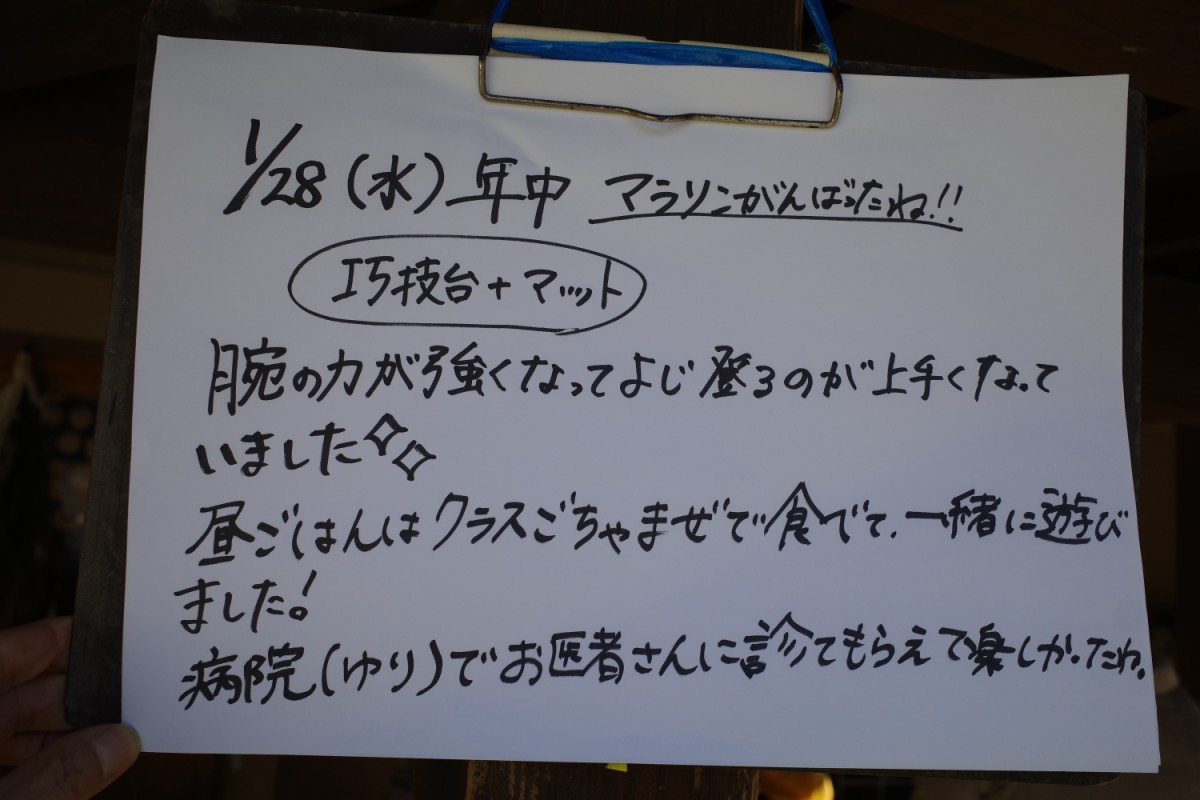 1/28(水)年中 マラソンがんばったね!!
巧技台+マット
腕の力が強くなってよじ登るのが上手くなって
いました✧✧
昼ごはんはクラスごちゃまぜで食べて、一緒に遊び
ました!
病院(ゆり)でお医者さんに診てもらえて楽しかったね。